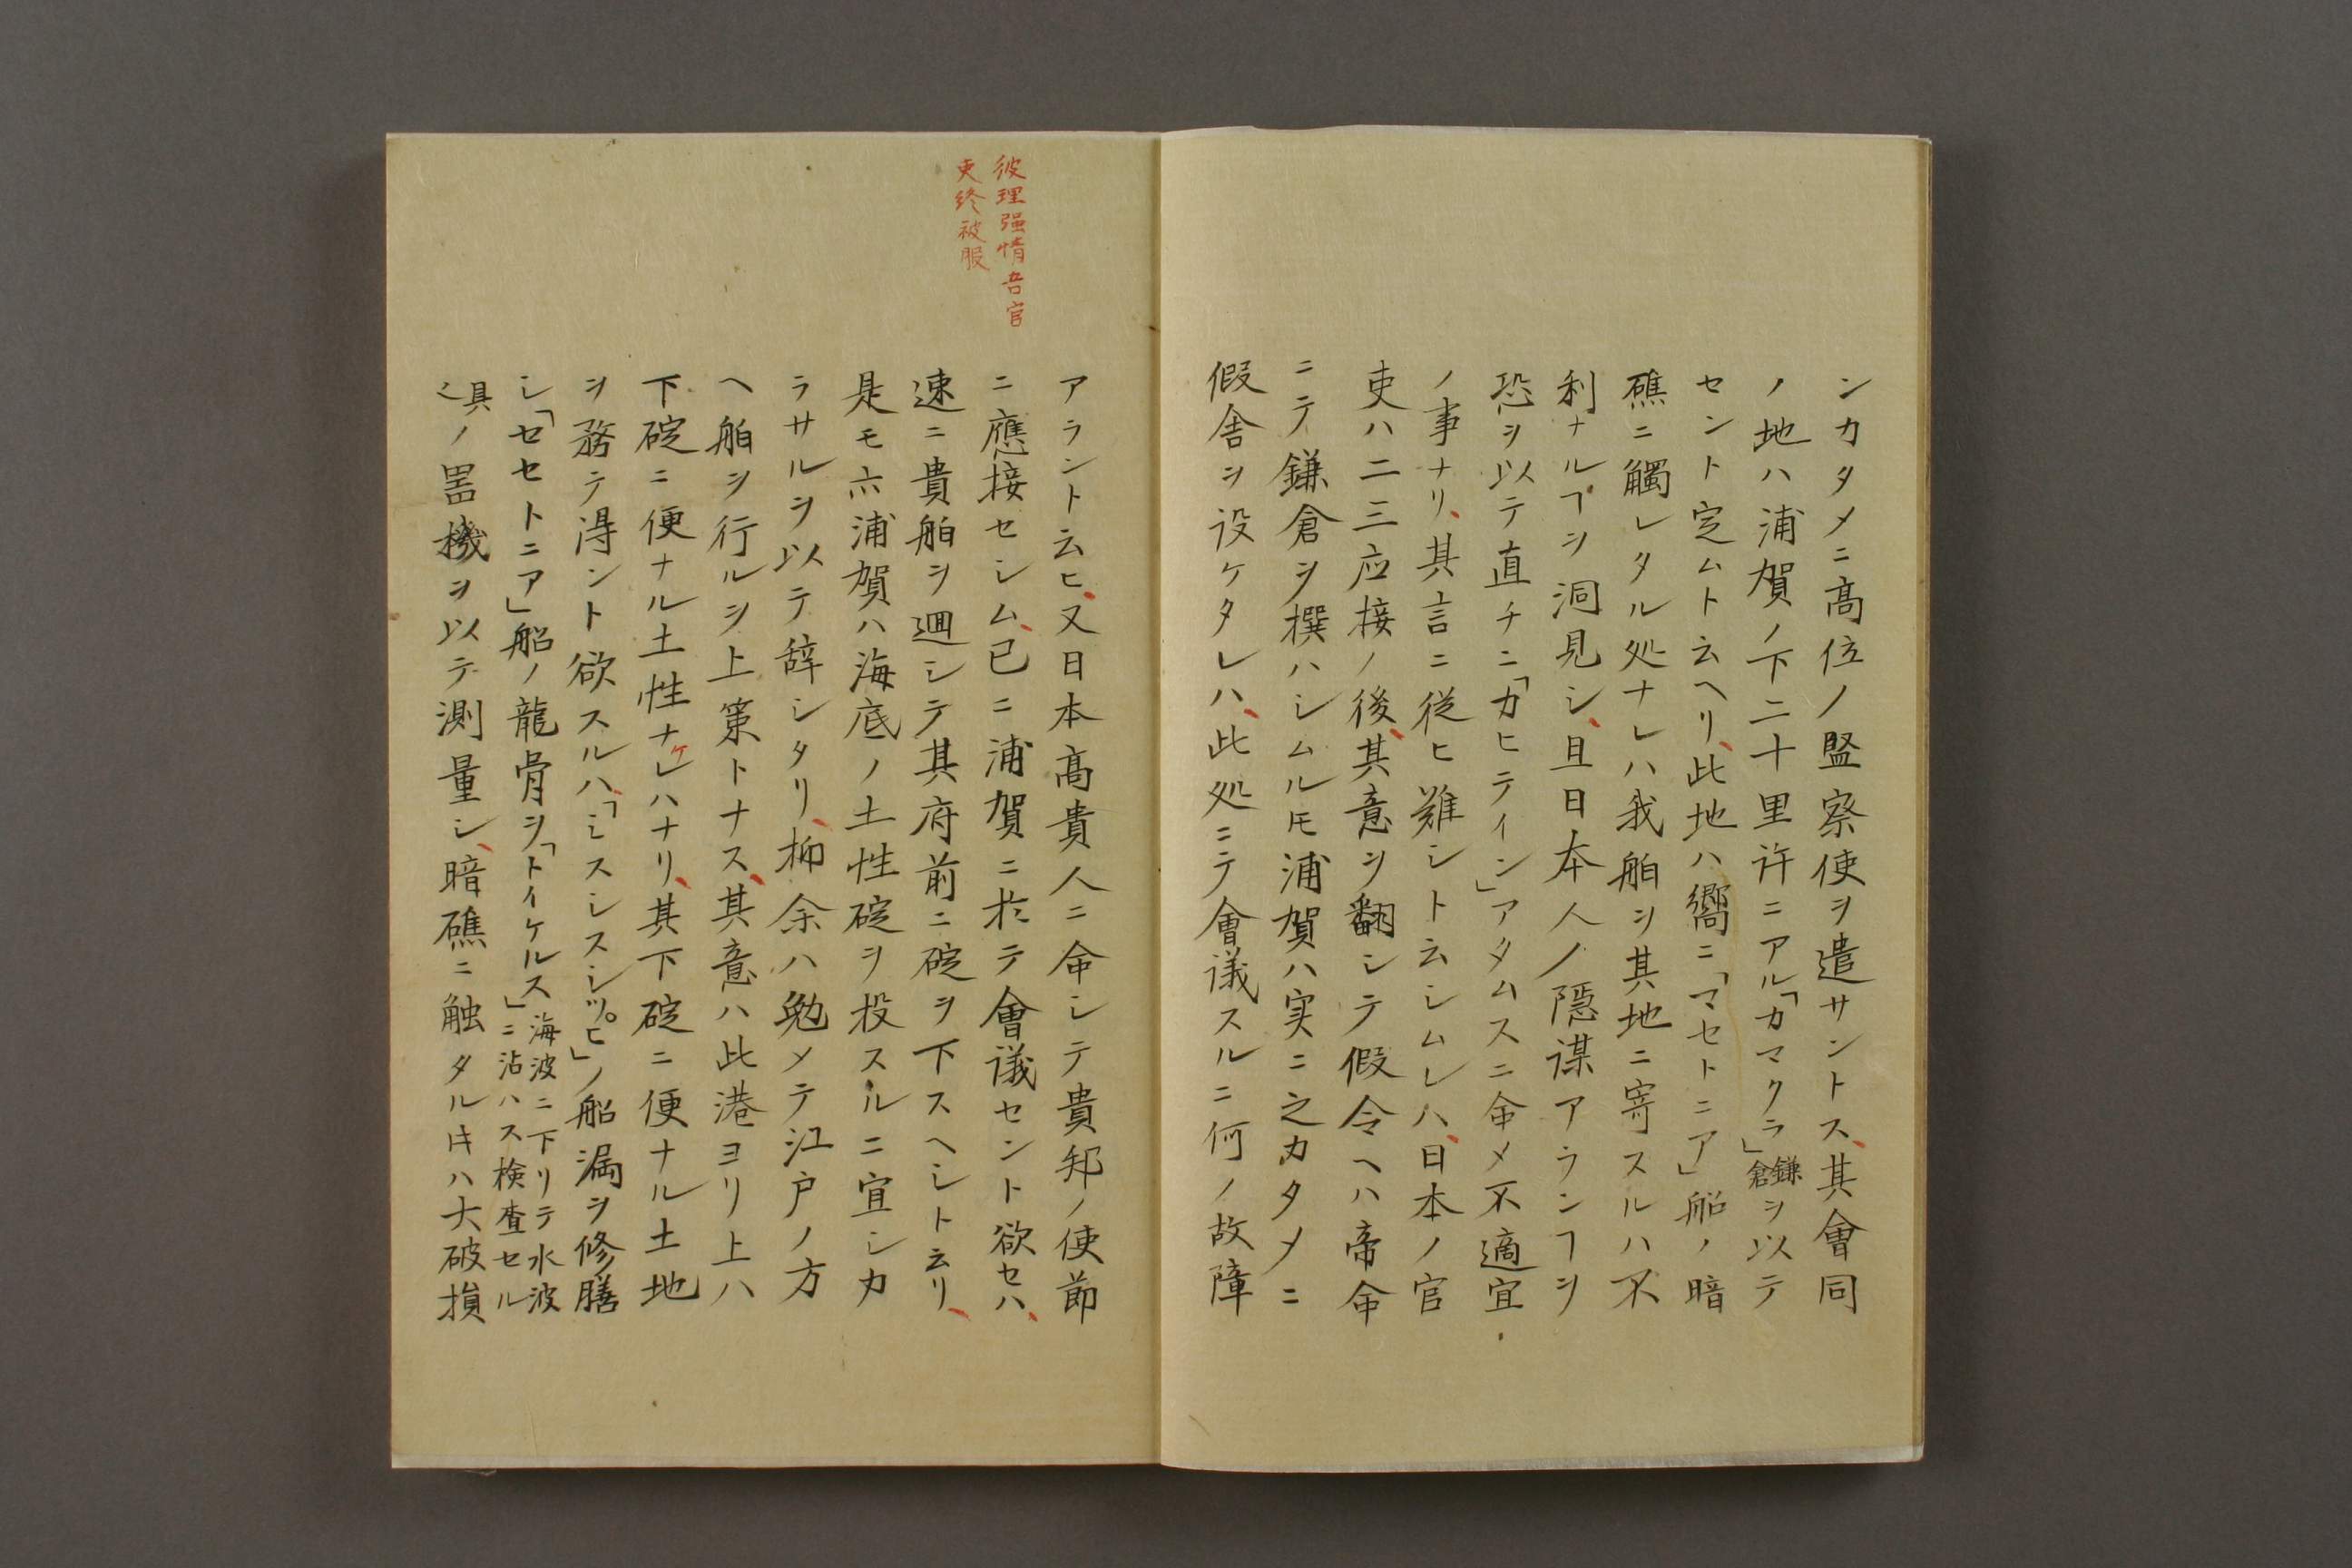 ンカタメニ髙位ノ監察使ヲ遣サントス、其會同
ノ地ハ浦賀ノ下二十里許ニアル「カマクラ」鎌倉ヲ以テ
セント定ムト云ヘリ、此地ハ嚮ニ「マセトニア」船ノ暗
礁ニ觸レタル処ナレハ我舶ヲ其地ニ寄スルハ不
利ナルヿヲ洞見シ、且日本人ノ隠謀アランヿヲ
恐ヲ以テ直チニ「カヒテイン」アタムスニ命メ不適宜
ノ事ナリ、其言ニ従ヒ難シト云シムレハ、日本ノ官
吏ハ二三应接ノ後、其意ヲ翻シテ假令ヘハ帝命
ニテ鎌倉ヲ撰ハシムルモ浦賀ハ実ニ之カタメニ
假舎ヲ設ケタレハ、此処ニテ會議スルニ何ノ故障
彼理強情吾官
吏終被服
アラント云ヒ、又日本髙貴人ニ命シテ貴邦ノ使節
ニ應接セシム、已ニ浦賀ニ於テ會議セント欲セハ、
速ニ貴舶ヲ廻シテ其府前ニ碇ヲ下スヘシト云リ、
是モ亦浦賀ハ海底ノ土性碇ヲ投スルニ宜シカ
ラサルヲ以テ辞シタリ、抑余ハ勉メテ江戸ノ方
ヘ舶ヲ行ルヲ上策トナス、其意ハ此港ヨリ上ハ
下碇ニ便ナル土性ナケレハナリ、其下碇ニ便ナル土地
ヲ務テ淂ント欲スルハ、「シスシスシッピ」ノ船漏ヲ修膳
シ「セセトニア」船ノ龍骨ヲ「トイケルス」海波ニ下リテ水波ニ沾ハス検査セル
具ノ噐機ヲ以テ測量シ、暗礁ニ触タルキハ大破損